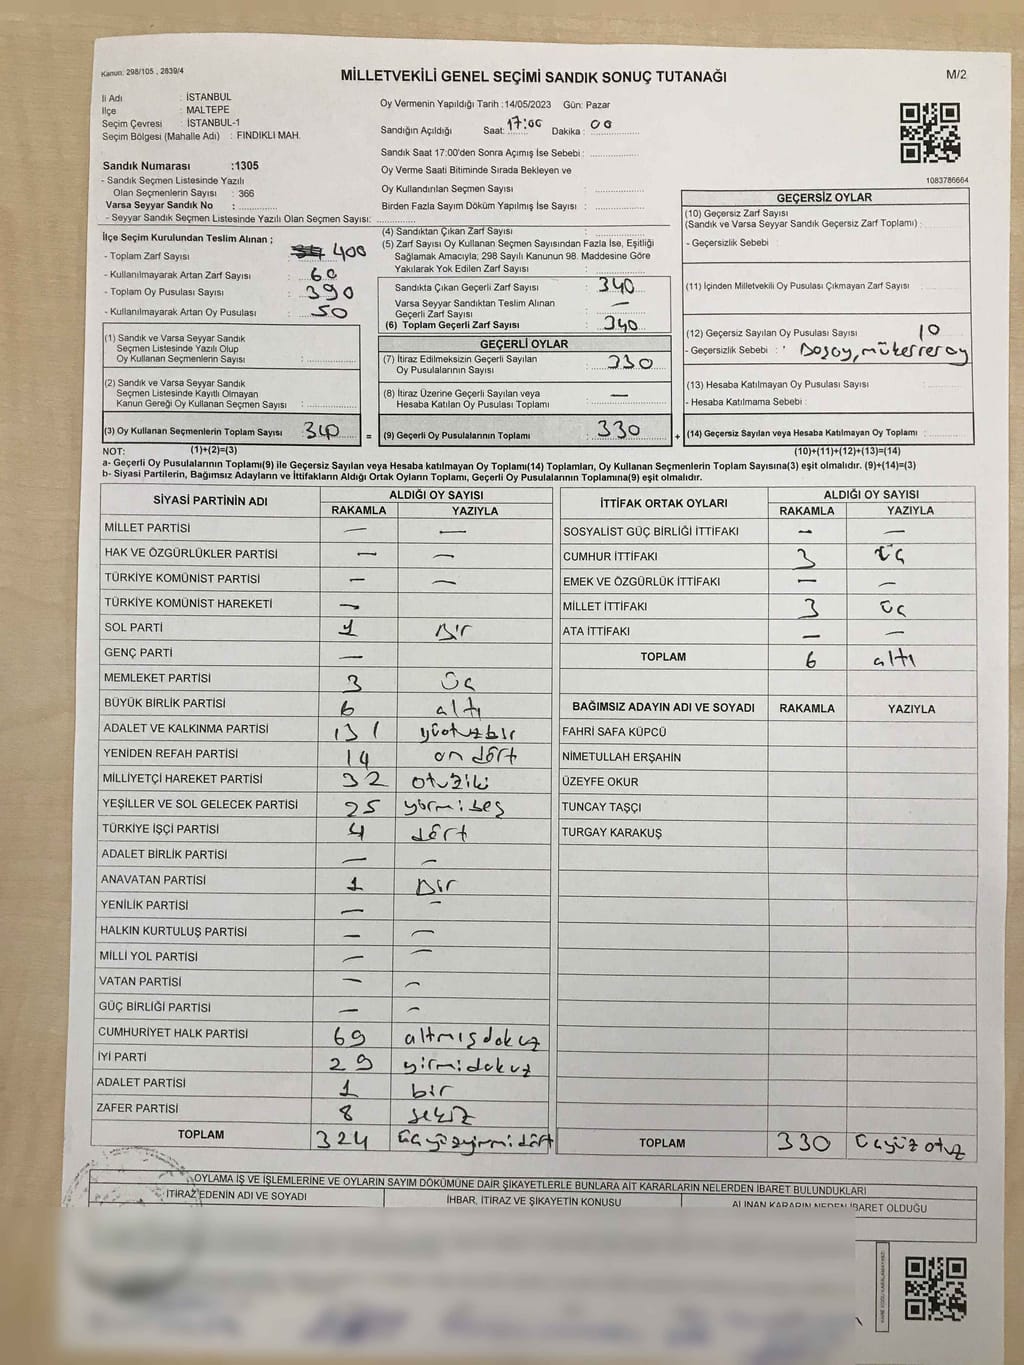 Kanun: 298/105 , 2839/4
MİLLETVEKİLİ GENEL SEÇİMİ SANDIK SONUÇ TUTANAĞI
M/2
İl Adı : İSTANBUL
İlçe : MALTEPE
Seçim Çevresi : İSTANBUL-1
Seçim Bölgesi (Mahalle Adı) : FINDIKLI MAH.
Oy Vermenin Yapıldığı Tarih :14/05/2023 Gün: Pazar
Sandığın Açıldığı Saat: 17:00 Dakika : 00
Sandık Saat 17:00'den Sonra Açımış İse Sebebi :
Oy Verme Saati Bitiminde Sırada Bekleyen ve
Oy Kullandırılan Seçmen Sayısı :
Birden Fazla Sayım Döküm Yapılmış İse Sayısı :
1083786664
Sandık Numarası :1305
- Sandık Seçmen Listesinde Yazılı
Olan Seçmenlerin Sayısı : 366
Varsa Seyyar Sandık No :
- Seyyar Sandık Seçmen Listesinde Yazılı Olan Seçmen Sayısı:
İlçe Seçim Kurulundan Teslim Alınan ;
- Toplam Zarf Sayısı : 400
- Kullanılmayarak Artan Zarf Sayısı : 60
- Toplam Oy Pusulası Sayısı : 390
- Kullanılmayarak Artan Oy Pusulası : 50
(1) Sandık ve Varsa Seyyar Sandık
Seçmen Listesinde Yazılı Olup
Oy Kullanan Seçmenlerin Sayısı :
(2) Sandık ve Varsa Seyyar Sandık
Seçmen Listesinde Kayıtlı Olmayan
Kanun Gereği Oy Kullanan Seçmen Sayısı :
(3) Oy Kullanan Seçmenlerin Toplam Sayısı 340 =
(4) Sandıktan Çıkan Zarf Sayısı :
(5) Zarf Sayısı Oy Kullanan Seçmen Sayısından Fazla İse, Eşitliği
Sağlamak Amacıyla, 298 Sayılı Kanunun 98. Maddesine Göre
Yakılarak Yok Edilen Zarf Sayısı :
Sandıkta Çıkan Geçerli Zarf Sayısı : 340
Varsa Seyyar Sandıktan Teslim Alınan
Geçerli Zarf Sayısı : —
(6) Toplam Geçerli Zarf Sayısı : 340
GEÇERLİ OYLAR
(7) İtiraz Edilmeksizin Geçerli Sayılan
Oy Pusulalarının Sayısı : 330
(8) İtiraz Üzerine Geçerli Sayılan veya
Hesaba Katılan Oy Pusulası Toplamı : —
(9) Geçerli Oy Pusulalarının Toplamı : 330 +
GEÇERSİZ OYLAR
(10) Geçersiz Zarf Sayısı
(Sandık ve Varsa Seyyar Sandık Geçersiz Zarf Toplamı) :
- Geçersizlik Sebebi :
(11) İçinden Milletvekili Oy Pusulası Çıkmayan Zarf Sayısı :
(12) Geçersiz Sayılan Oy Pusulası Sayısı : 10
- Geçersizlik Sebebi : Boş oy, mükerrer oy
(13) Hesaba Katılmayan Oy Pusulası Sayısı :
- Hesaba Katılmama Sebebi :
(14) Geçersiz Sayılan veya Hesaba Katılmayan Oy Toplamı :
NOT: (1)+(2)=(3) (10)+(11)+(12)+(13)=(14)
a- Geçerli Oy Pusulalarının Toplamı(9) ile Geçersiz Sayılan veya Hesaba katılmayan Oy Toplamı(14) Toplamları, Oy Kullanan Seçmenlerin Toplam Sayısına(3) eşit olmalıdır. (9)+(14)=(3)
b- Siyasi Partilerin, Bağımsız Adayların ve İttifakların Aldığı Ortak Oyların Toplamı, Geçerli Oy Pusulalarının Toplamına(9) eşit olmalıdır.
SİYASİ PARTİNİN ADI ALDIĞI OY SAYISI
RAKAMLA YAZIYLA
MİLLET PARTİSİ — —
HAK VE ÖZGÜRLÜKLER PARTİSİ — —
TÜRKİYE KOMÜNİST PARTİSİ — —
TÜRKİYE KOMÜNİST HAREKETİ —
SOL PARTİ 1 Bir
GENÇ PARTİ —
MEMLEKET PARTİSİ 3 üç
BÜYÜK BİRLİK PARTİSİ 6 altı
ADALET VE KALKINMA PARTİSİ 131 yüotuzbir
YENİDEN REFAH PARTİSİ 14 on dört
MİLLİYETÇİ HAREKET PARTİSİ 32 otuziki
YEŞİLLER VE SOL GELECEK PARTİSİ 25 yirmi beş
TÜRKİYE İŞÇİ PARTİSİ 4 dört
ADALET BİRLİK PARTİSİ — —
ANAVATAN PARTİSİ 1 Bir
YENİLİK PARTİSİ — —
HALKIN KURTULUŞ PARTİSİ — —
MİLLİ YOL PARTİSİ — —
VATAN PARTİSİ — —
GÜÇ BİRLİĞİ PARTİSİ — —
CUMHURİYET HALK PARTİSİ 69 altmışdokuz
İYİ PARTİ 29 yirmidokuz
ADALET PARTİSİ 1 bir
ZAFER PARTİSİ 8 sekiz
TOPLAM 324 üçyüzyirmidört
İTTİFAK ORTAK OYLARI ALDIĞI OY SAYISI
RAKAMLA YAZIYLA
SOSYALİST GÜÇ BİRLİĞİ İTTİFAKI — —
CUMHUR İTTİFAKI 3 üç
EMEK VE ÖZGÜRLÜK İTTİFAKI — —
MİLLET İTTİFAKI 3 üç
ATA İTTİFAKI — —
TOPLAM 6 altı
BAĞIMSIZ ADAYIN ADI VE SOYADI RAKAMLA YAZIYLA
FAHRİ SAFA KÜPCÜ
NİMETULLAH ERŞAHİN
ÜZEYFE OKUR
TUNCAY TAŞÇI
TURGAY KARAKUŞ
TOPLAM 330 üçyüz otuz
OYLAMA İŞ VE İŞLEMLERİNE VE OYLARIN SAYIM DÖKÜMÜNE DAİR ŞİKAYETLERLE BUNLARA AİT KARARLARIN NELERDEN İBARET BULUNDUKLARI
İTİRAZ EDENİN ADI VE SOYADI
İHBAR, İTİRAZ VE ŞİKAYETİN KONUSU
ALINAN KARARIN NEDEN İBARET OLDUĞU